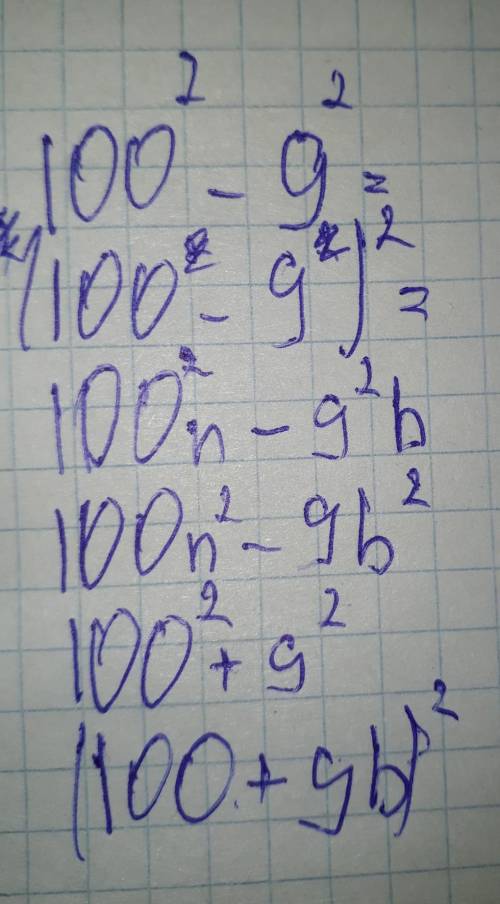 100² - 9² =
(100 - 9)² =
100²n - 9²b
100n² - 9b²
100² + 9²
(100 + 9b)²